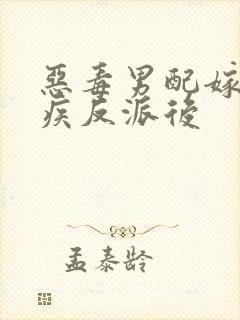 惡毒男配嫁
疾反派後
孟泰龄